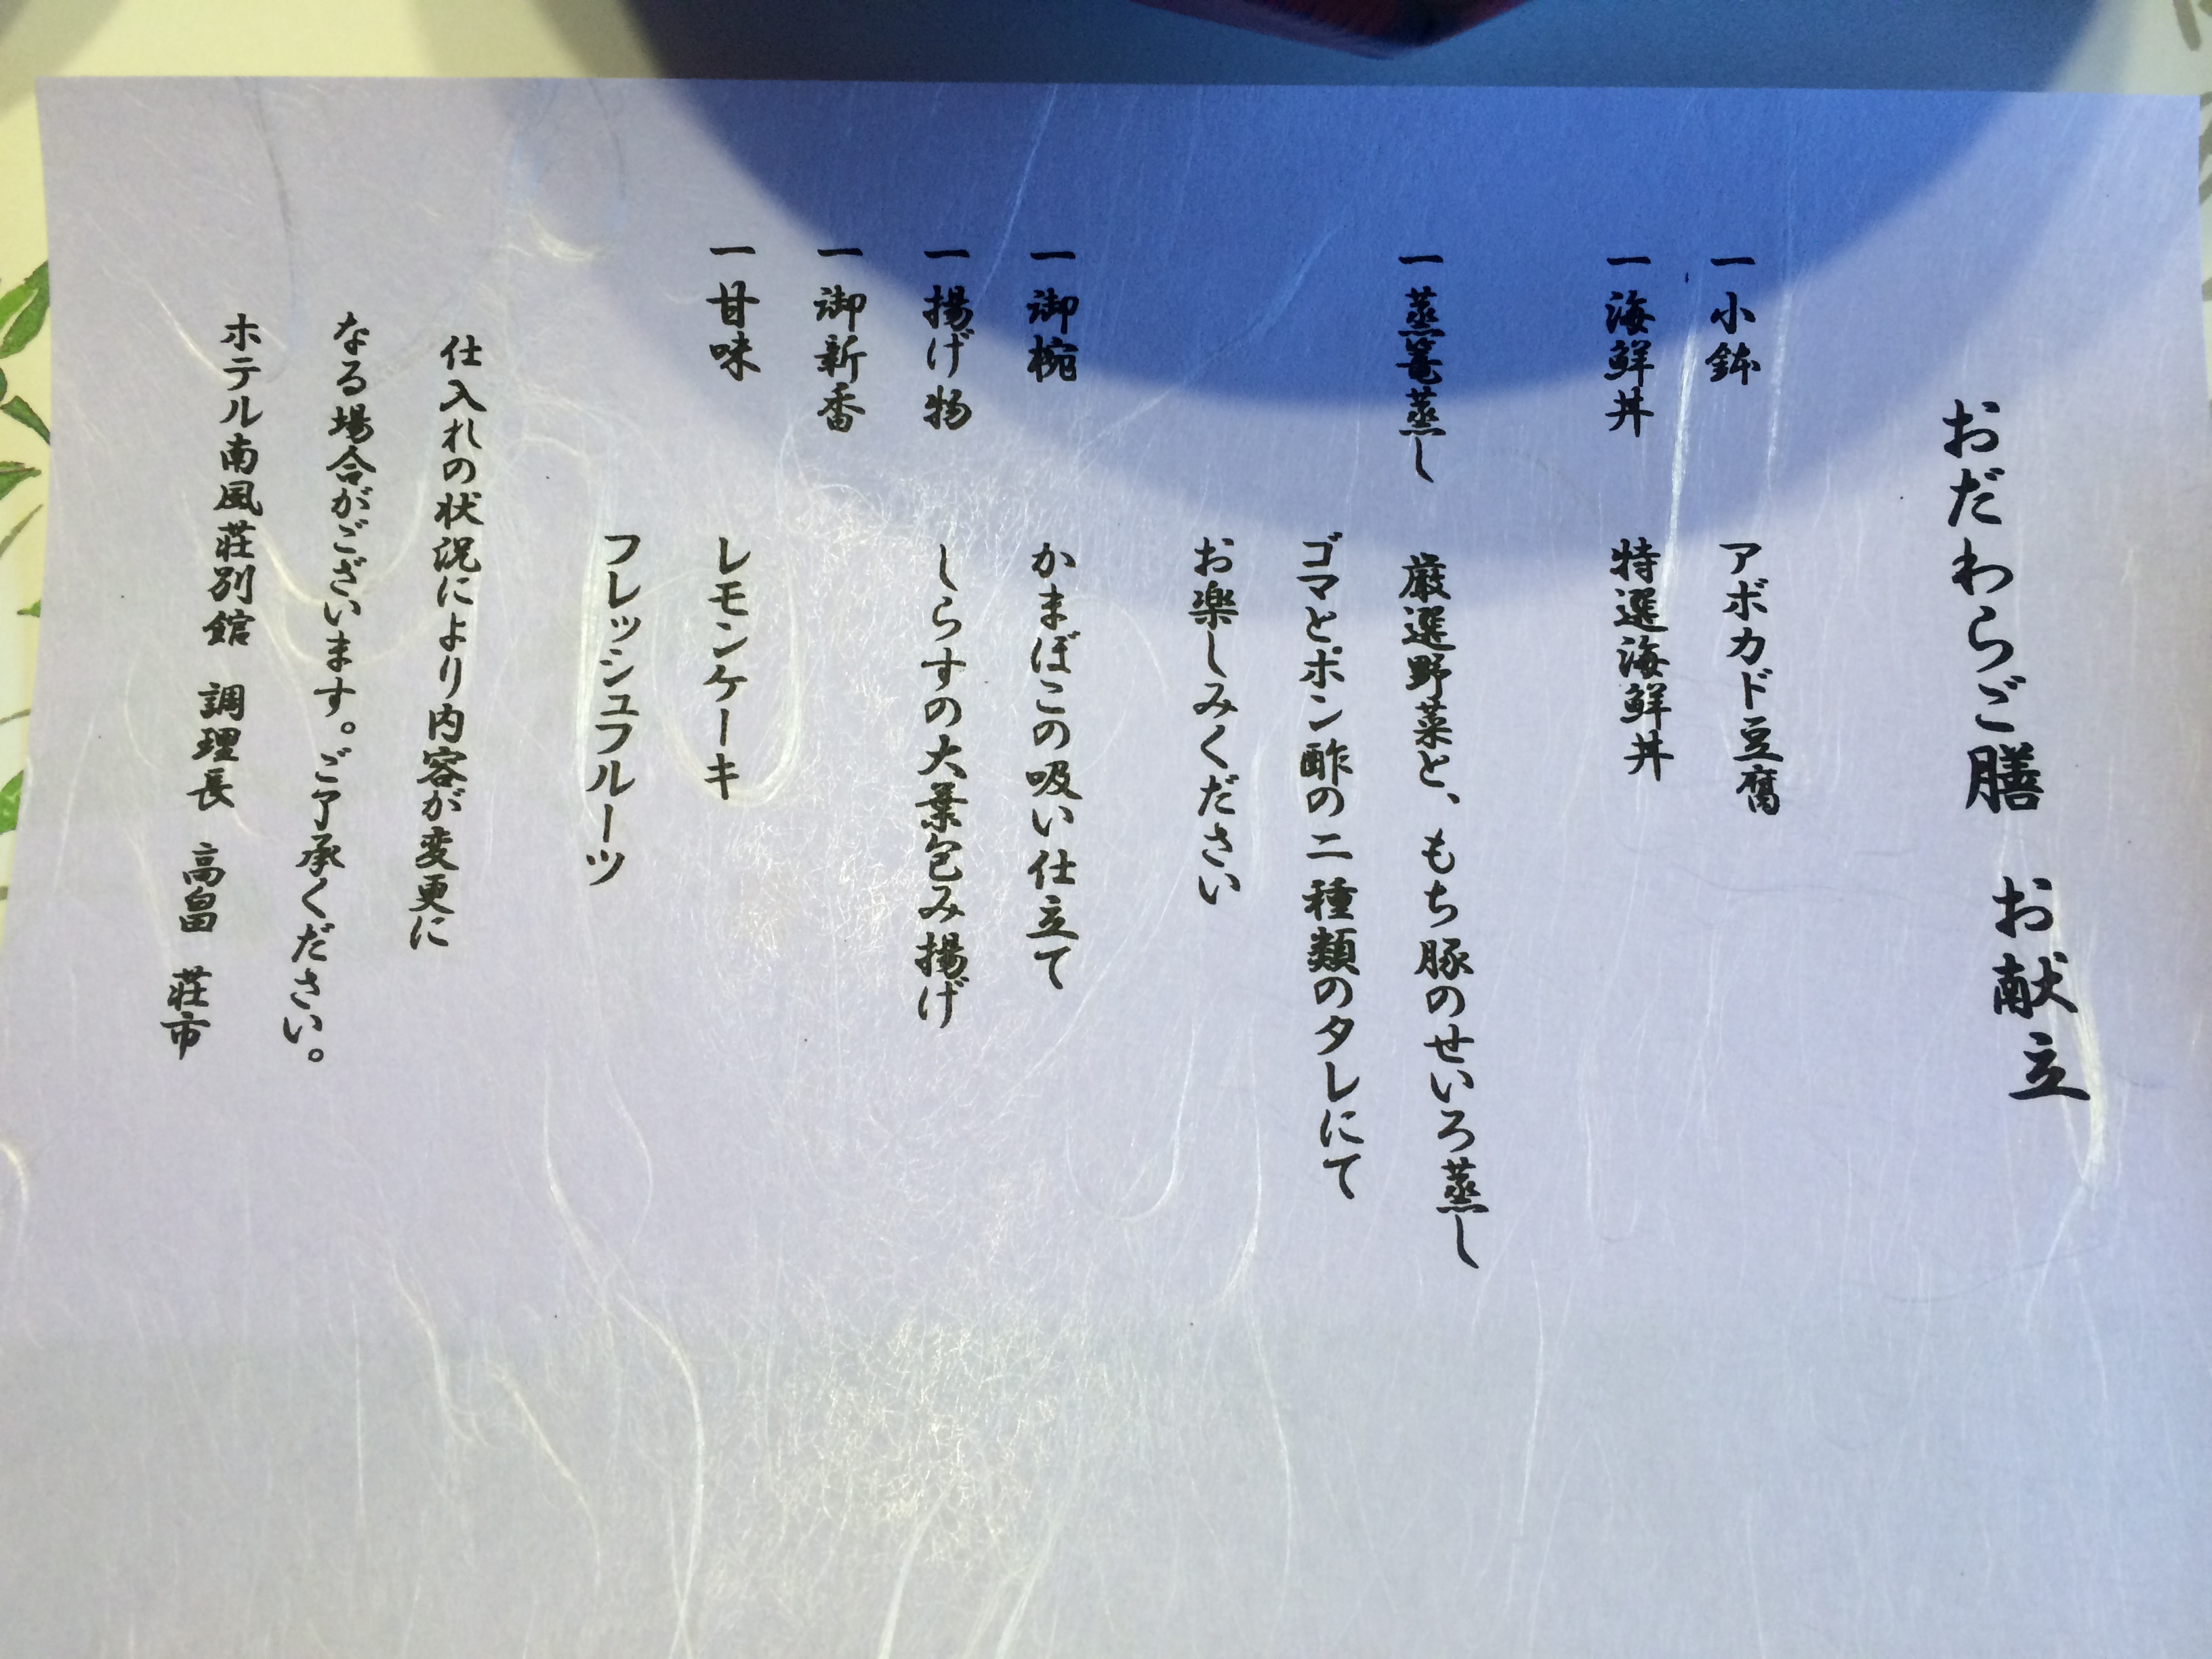 おだわらご膳 お献立
一 小鉢 アボカド豆腐
一 海鮮丼 特選海鮮丼
一 蒸篭蒸し 厳選野菜と、もち豚のせいろ蒸し
ゴマとポン酢の二種類のタレにて
お楽しみください
一 御椀 かまぼこの吸い仕立て
一 揚げ物 しらすの大葉包み揚げ
一 御新香
一 甘味 レモンケーキ
フレッシュフルーツ
仕入れの状況により内容が変更に
なる場合がございます。ご了承ください。
ホテル南風荘別館 調理長 高畠 荘市